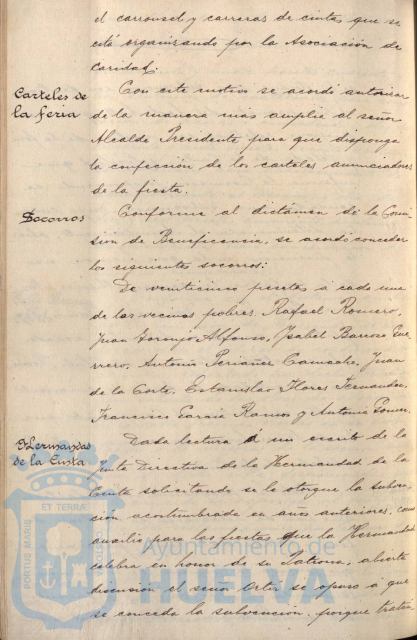 el carrousel y carreras de cintas que se
está organizando por la Asociación de
Caridad.
Carteles de
la feria
Con este motivo se acordó autorizar
de la manera más amplia al señor
Alcalde Presidente para que disponga
la confección de los carteles anunciadores
de la fiesta.
Socorros
Conforme al dictámen de la Comi
sión de Beneficencia, se acordó conceder
los siguientes socorros:
De veinticinco pesetas á cada uno
de los vecinos pobres, Rafael Romero,
Juan Alfonso, Isabel Barroso Gue
rrero, Antonio Periañez Camacho, Juan
de la Corte, Estanislao Flores Fernandez,
Francisco García Ramos y Antonia Gomez.
Hermandad
de la Cinta
Dada lectura á un escrito de la
Junta Directiva de la Hermandad de la
Cinta solicitando se le otorgue la subven
ción acostumbrada en años anteriores, como
auxilio para las fiestas que la Hermandad
celebra en honor de su Patrona, abierta
discusión el señor se opuso á que
se conceda la subvención, porque tratán
PORTUS MARIS ET TERRÆ
Ayuntamiento de
HUELVA